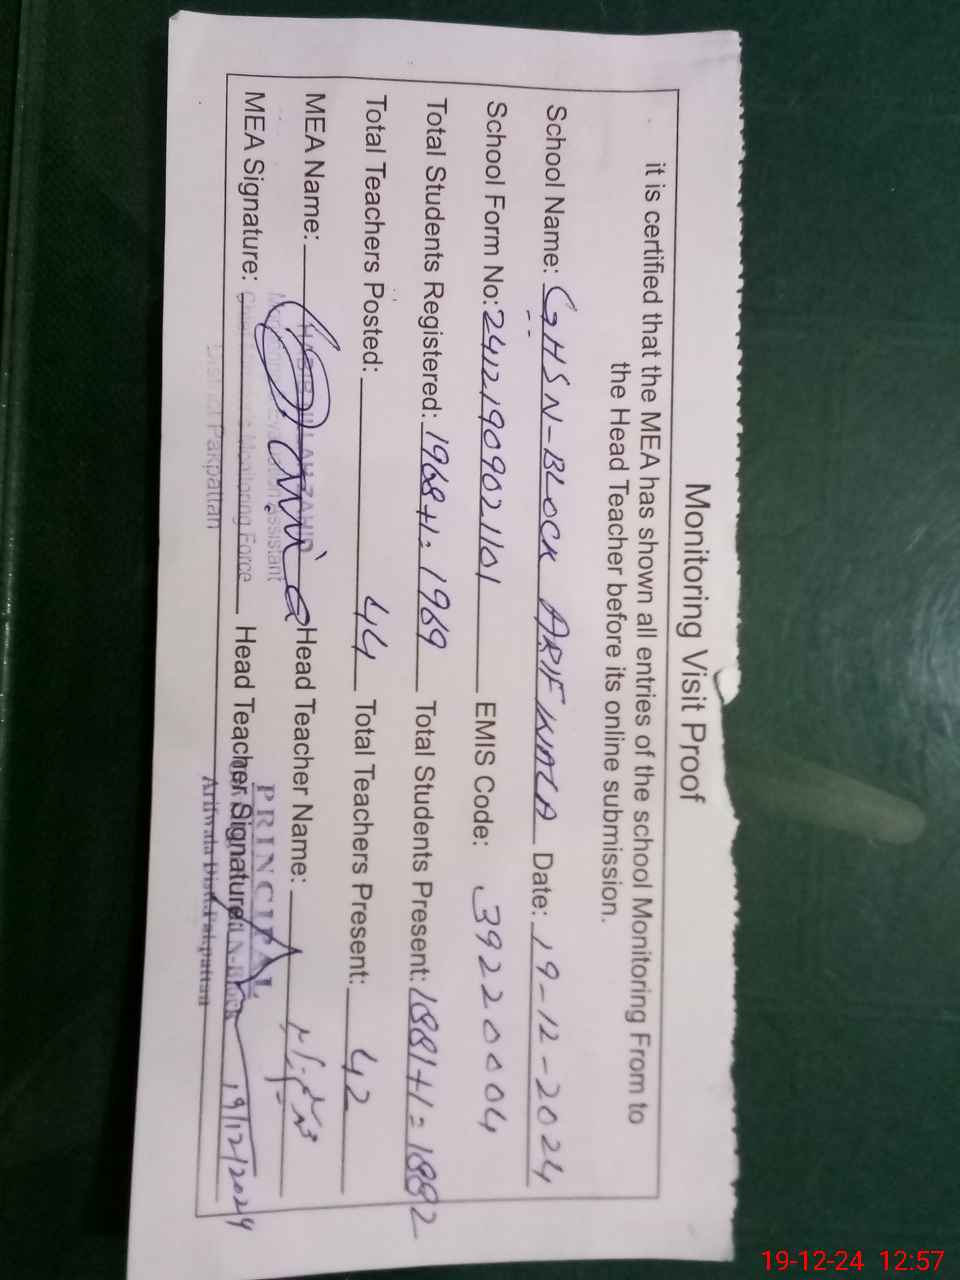 Monitoring Visit Proof
it is certified that the MEA has shown all entries of the school Monitoring From to
the Head Teacher before its online submission.
School Name: GHS N-BLOCK ARIFWALA Date: 19-12-2024
School Form No: 24121909021101 EMIS Code: 39220004
Total Students Registered: 1968+1=1969 Total Students Present: 1881+1=1882
Total Teachers Posted: 44 Total Teachers Present: 42
MEA Name: Head Teacher Name:
MEA Signature: Head Teacher Signature:
Monitoring Force
District Pakpattan
PRINCIPAL
N-Block
Arifwala Distt. Pakpattan
19/12/2024
19-12-24 12:57